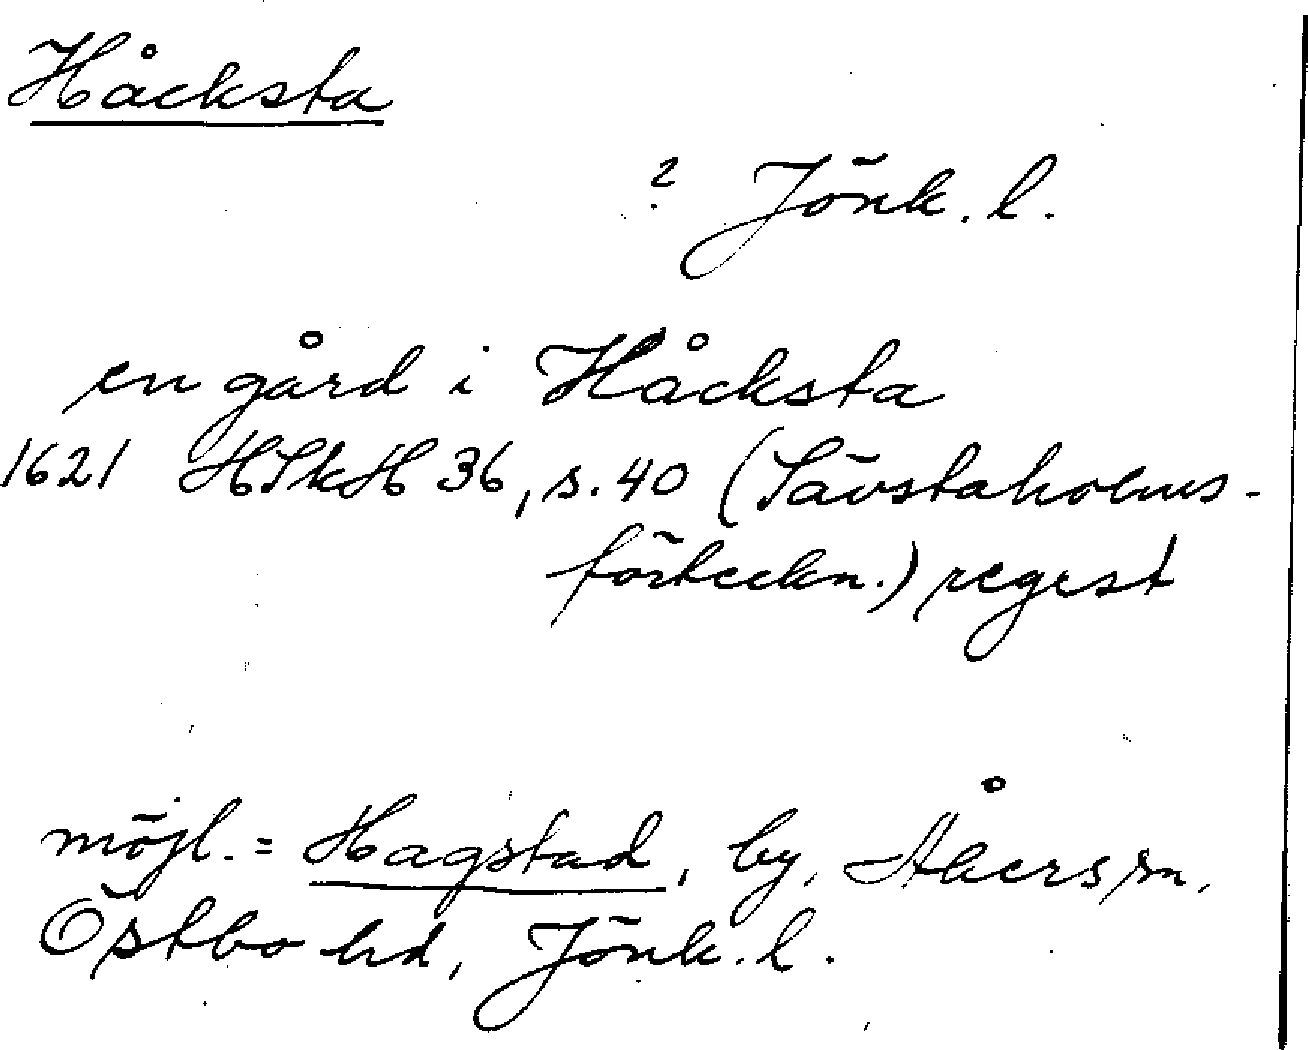 Håcksta
? Jönk. l.
en gård i Håcksta
1621 HSkH 36, s. 40 (Sävstaholms-
förteckn.) regest
möjl. = Hagstad, by, Åkers sn,
Östbo hd, Jönk. l.